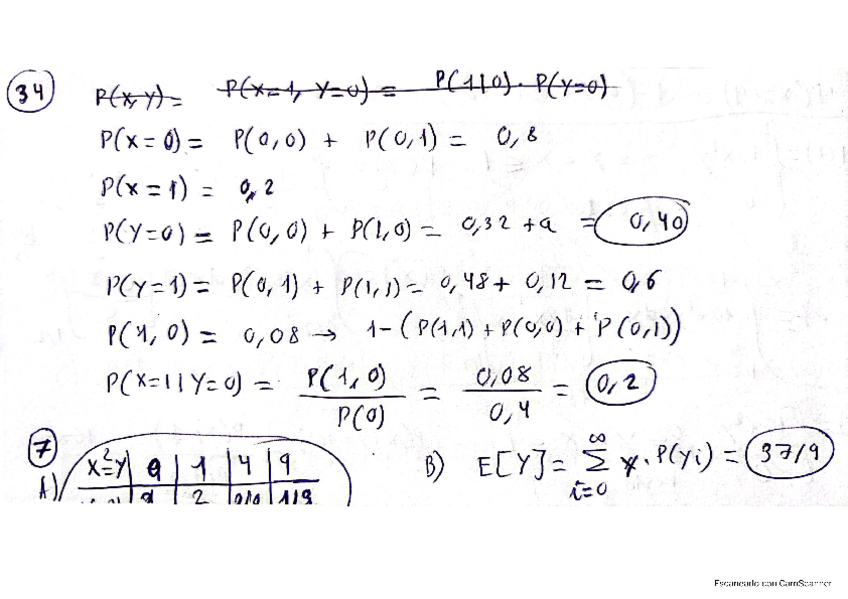 34
P(X,Y)= P(X=1, Y=0) = P(1|0) · P(Y=0)
P(X=0) = P(0,0) + P(0,1) = 0,8
P(X=1) = 0,2
P(Y=0) = P(0,0) + P(1,0) = 0,32 + a = 0,40
P(Y=1) = P(0,1) + P(1,1) = 0,48 + 0,12 = 0,6
P(1,0) = 0,08 → 1-(P(1,1) + P(0,0) + P(0,1))
P(X=1|Y=0) = P(1,0) / P(0) = 0,08 / 0,4 = 0,2
7
A) X²=Y 0 1 4 9
2 1/9
B) E[Y] = ∞ Σ i=0 y · P(yi) = 37/9
Escaneado con CamScanner